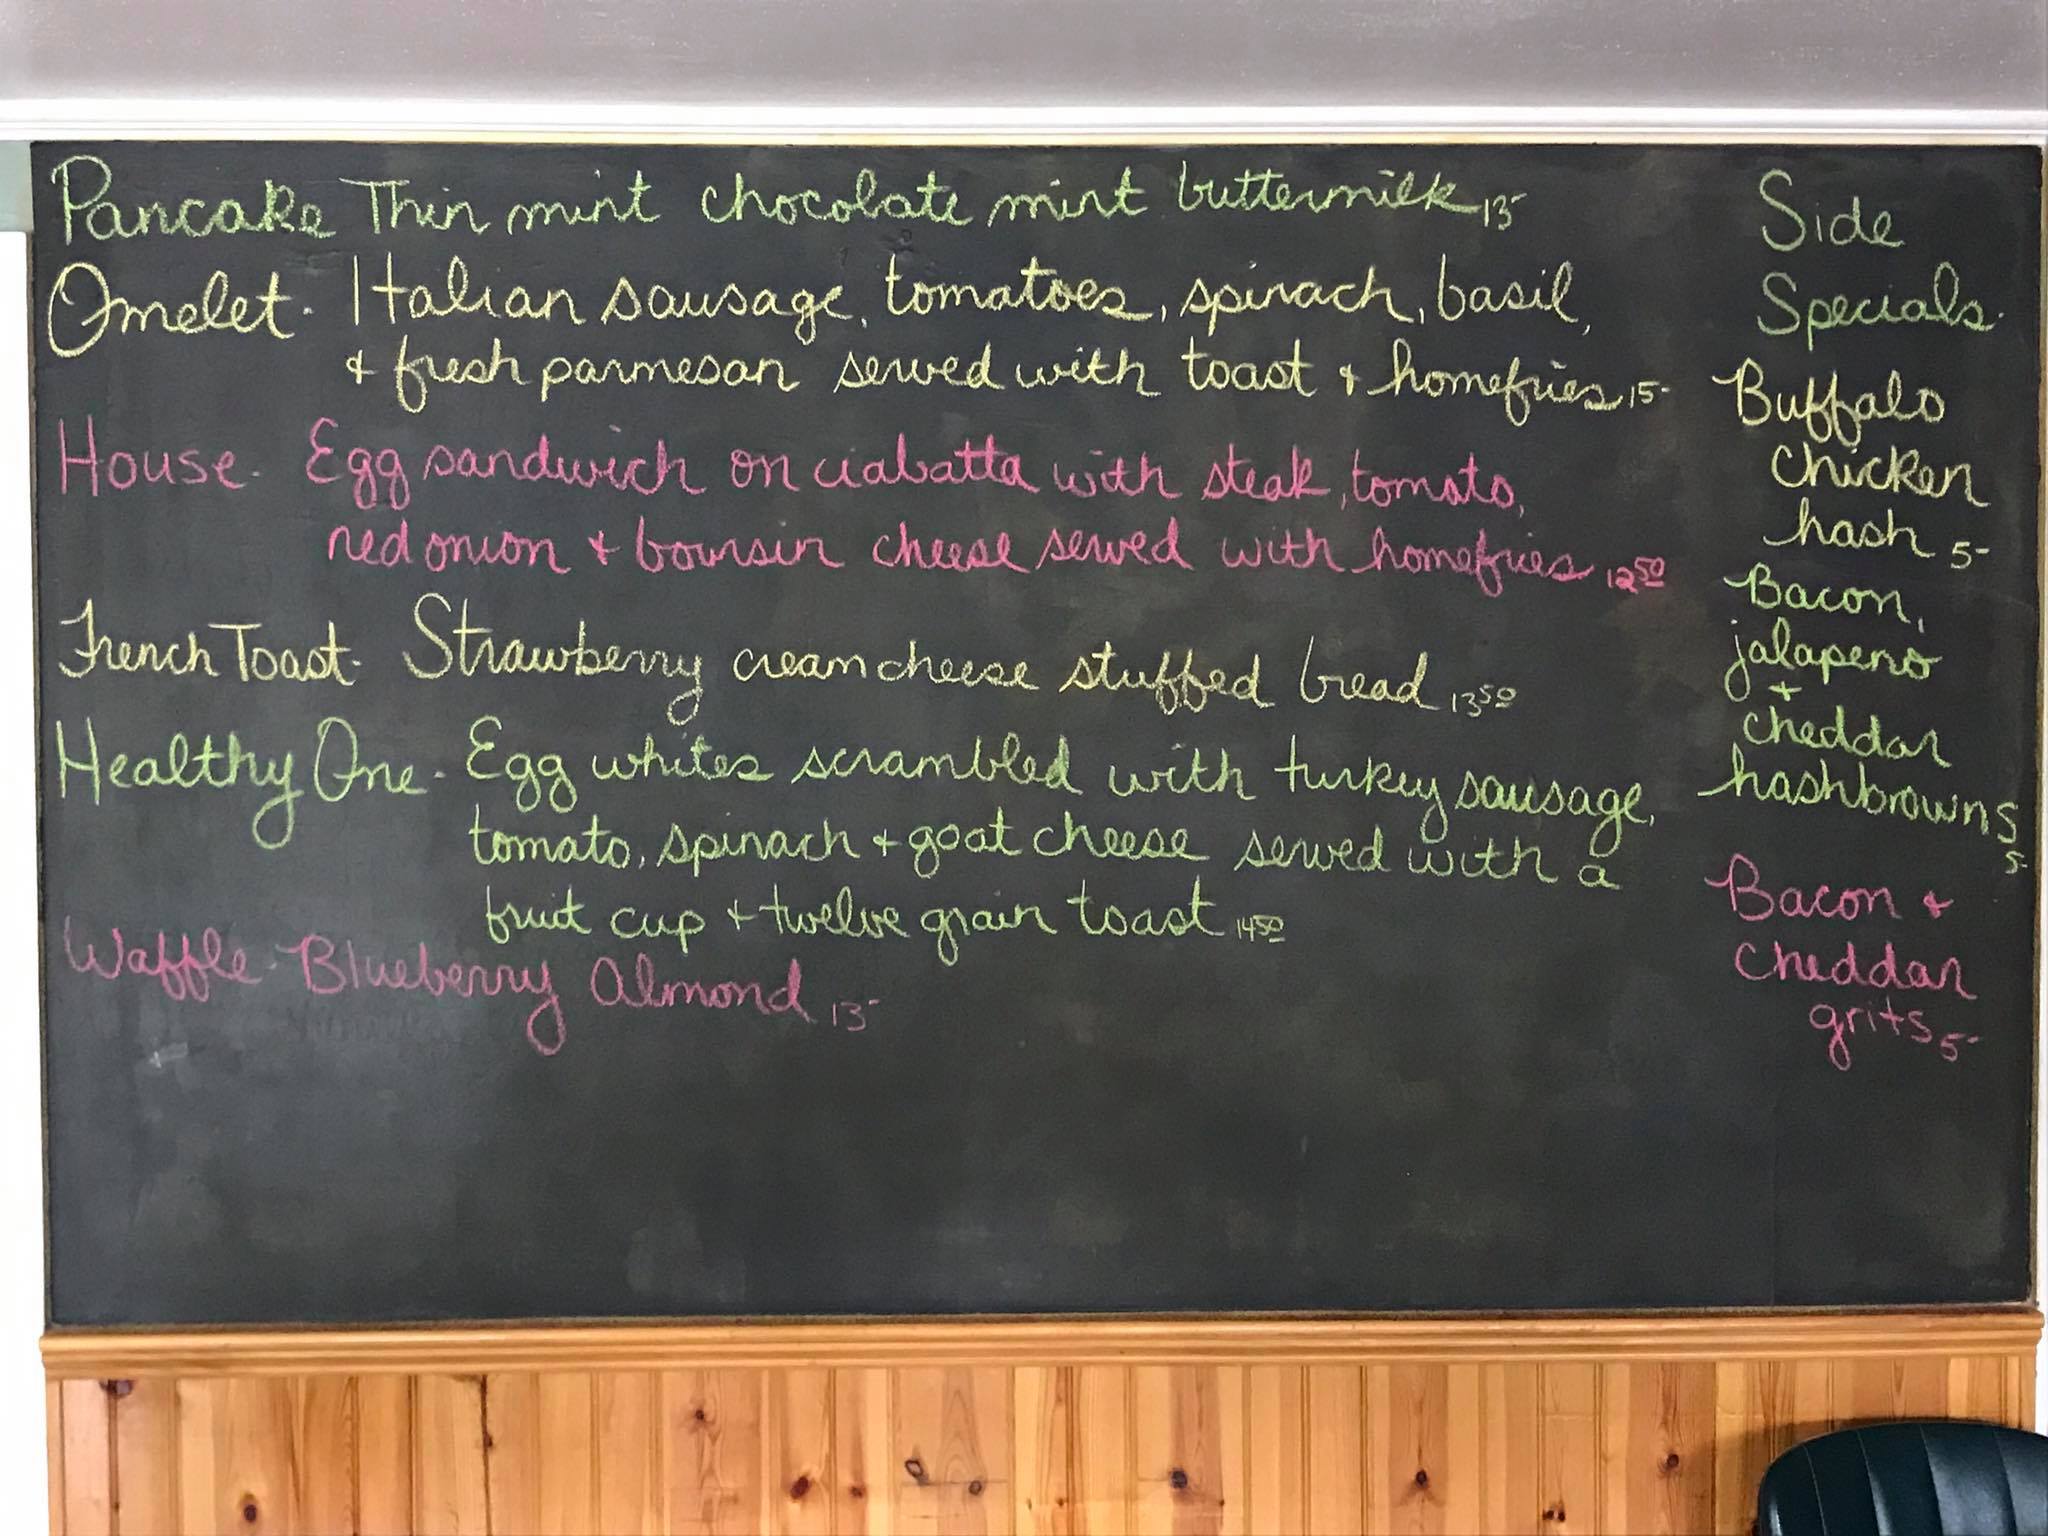 Pancake Thin mint chocolate mint buttermilk 13-
Omelet. Italian sausage, tomatoes, spinach, basil,
& fresh parmesan served with toast & homefries 15-
House. Egg sandwich on ciabatta with steak, tomato,
red onion & boursin cheese served with homefries 12 50
French Toast. Strawberry cream cheese stuffed bread 13 50
Healthy One. Egg whites scrambled with turkey sausage,
tomato, spinach & goat cheese served with a
fruit cup & twelve grain toast 14 50
Waffle. Blueberry Almond 13-
Side
Specials.
Buffalo
chicken
hash 5-
Bacon,
jalapeno
&
cheddar
hashbrowns
5-
Bacon &
cheddar
grits 5-